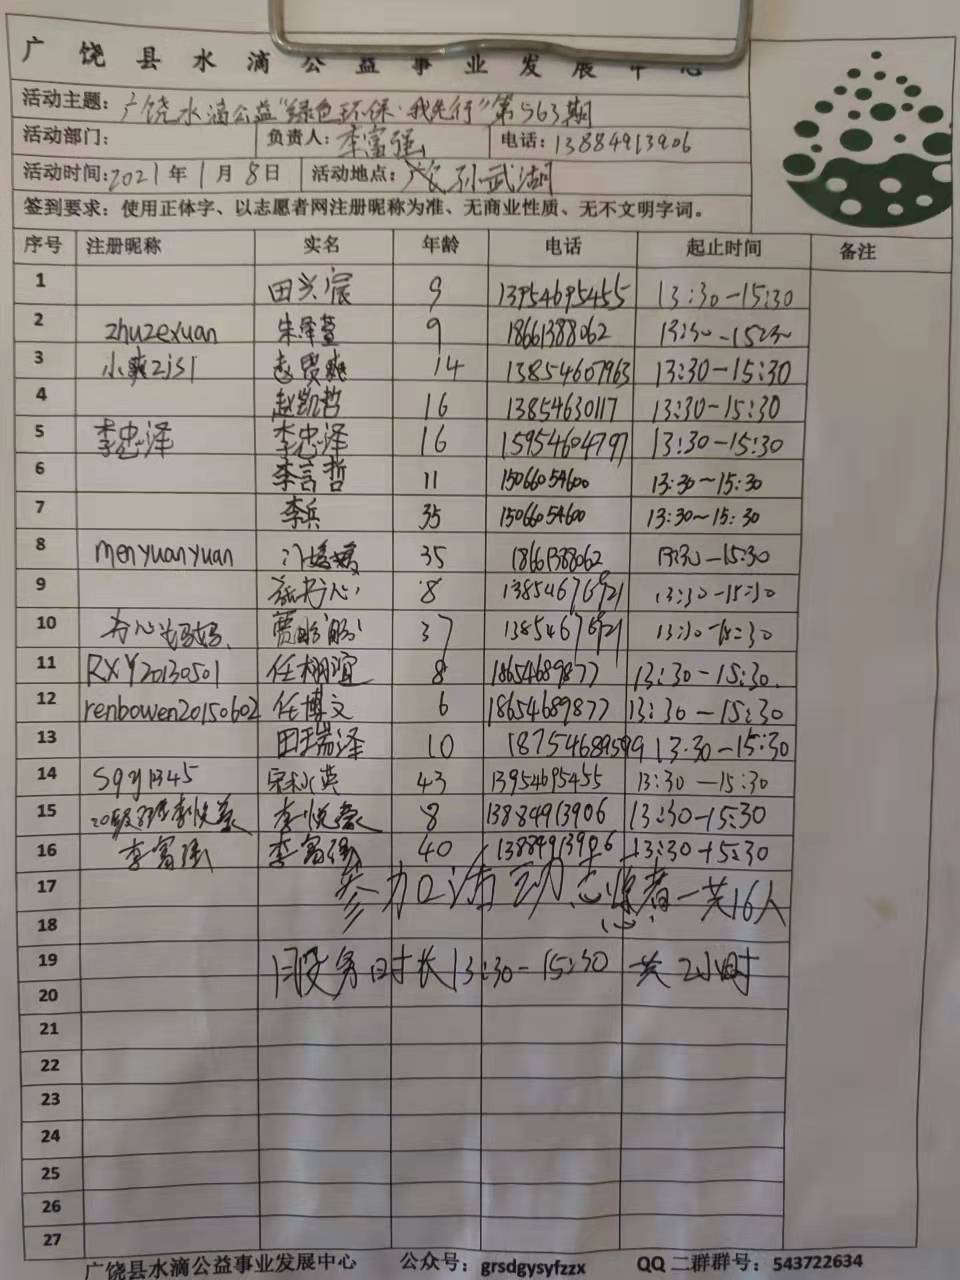 广饶县水滴公益事业发展中心
活动主题：广饶水滴公益"绿色环保·我先行"第563期
活动部门： 负责人：李富强 电话：13884913906
活动时间：2021年1月8日 活动地点：广饶孙武湖
签到要求：使用正体字、以志愿者网注册昵称为准、无商业性质、无不文明字词。
序号 注册昵称 实名 年龄 电话 起止时间 备注
1 田兴宸 9 13954695455 13:30-15:30
2 zhuzexuan 朱泽萱 9 18661388062 13:30-15:30
3 小爽zjsl 赵贤爽 14 13854607963 13:30-15:30
4 赵凯哲 16 13854630117 13:30-15:30
5 李忠泽 李忠泽 16 15954604797 13:30-15:30
6 李言哲 11 15066054600 13:30~15:30
7 李兵 35 15066054600 13:30~15:30
8 menyuanyuan 门媛媛 35 18661388062 13:30-15:30
9 张书心 8 13854676921 13:30-15:30
10 书心妈妈 贾盼盼 37 13854676921 13:30-15:30
11 RXY20130501 任栩谊 8 18654689877 13:30-15:30
12 renbowen20150602 任博文 6 18654689877 13:30-15:30
13 田瑞泽 10 18754689599 13:30-15:30
14 sqy1345 宋秋英 43 13954695455 13:30-15:30
15 李悦豪 8 13884913906 13:30-15:30
16 李富强 李富强 40 13884913906 13:30-15:30
17 参加活动志愿者一共16人
18
19 服务时长13:30-15:30 一共2小时
20
21
22
23
24
25
26
27
广饶县水滴公益事业发展中心 公众号：grsdgysyfzzx QQ二群群号：543722634